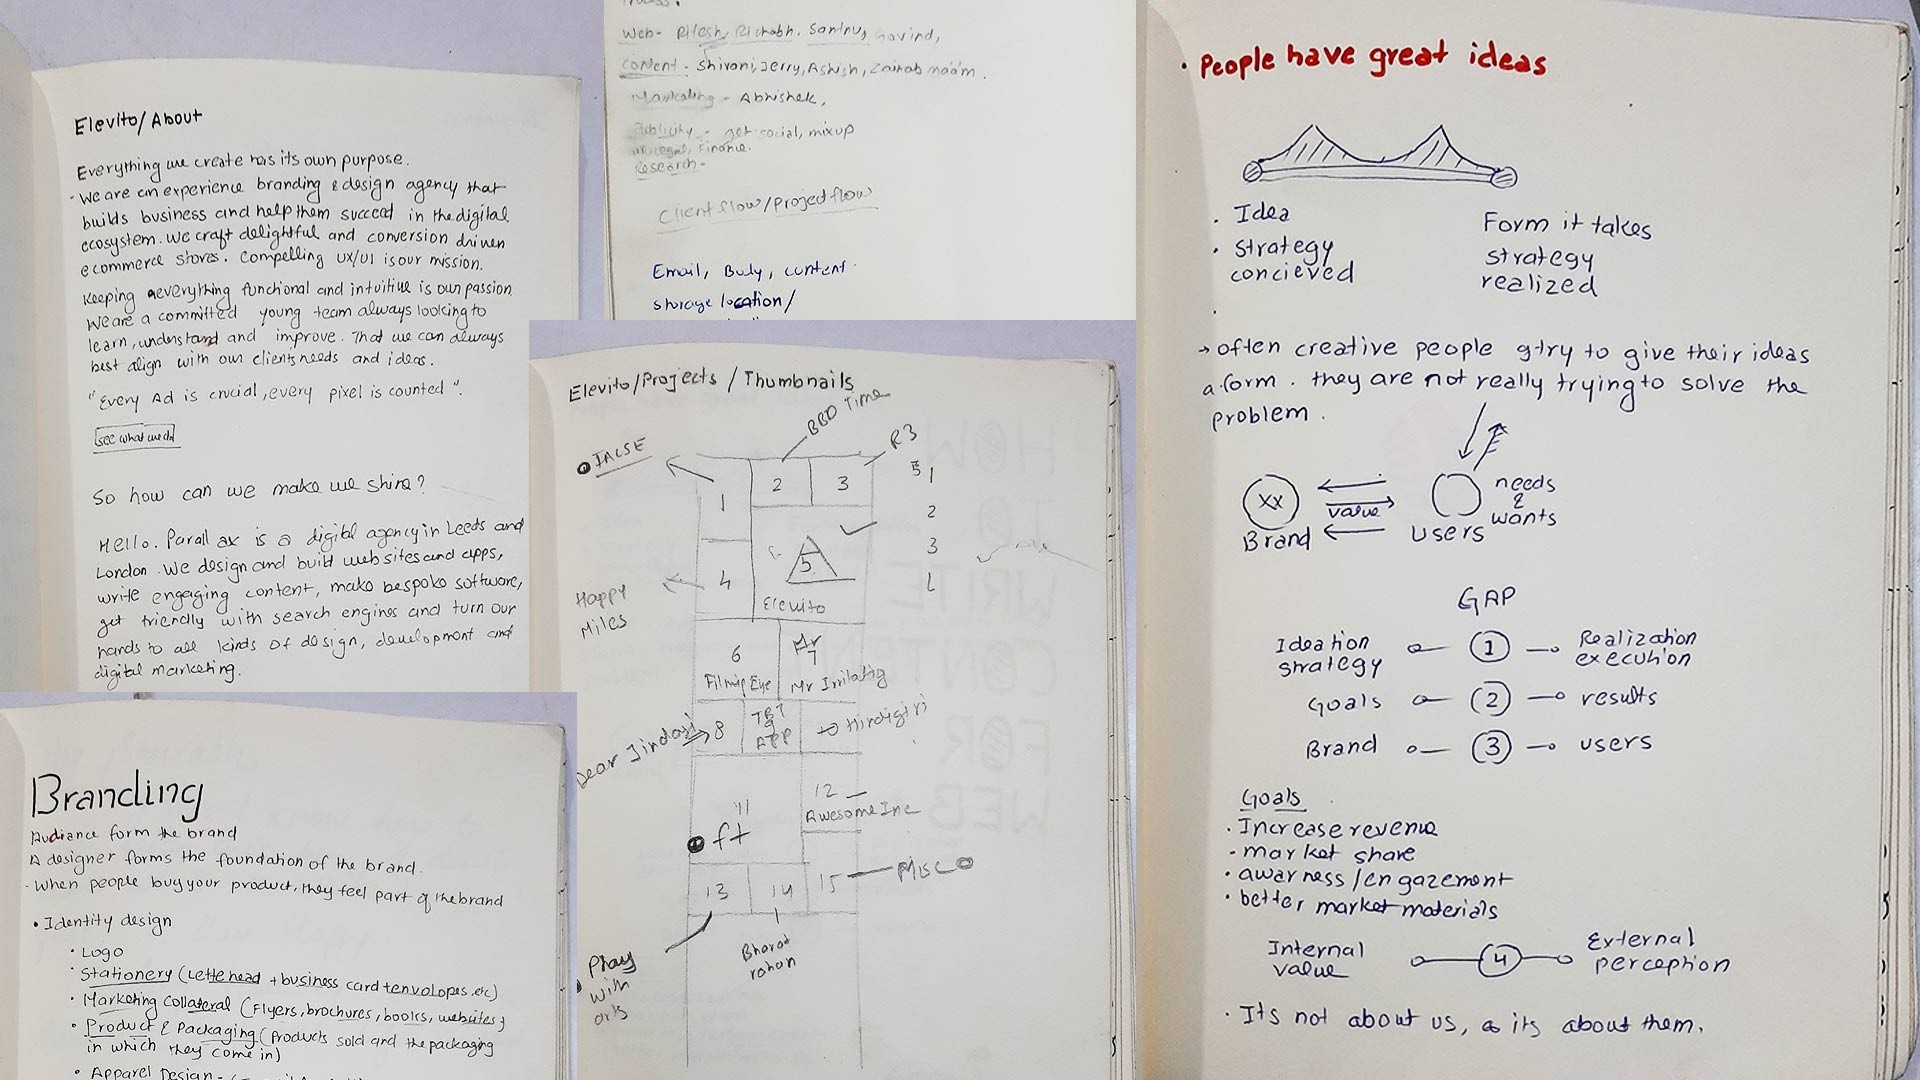 Elevito/About
Everything we create has its own purpose.
- We are an experience branding & design agency that
builds business and help them succed in the digital
ecosystem. We craft delightful and conversion driven
ecommerce stores. Compelling UX/UI is our mission.
Keeping everything functional and intuitive is our passion
We are a committed young team always looking to
learn, understand and improve. That we can always
best align with our clients needs and ideas.
"Every Ad is crucial, every pixel is counted".
see what we do
So how can we make we shine?
Hello. Parallax is a digital agency in Leeds and
London. We design and build websites and apps,
write engaging content, make bespoke software,
get friendly with search engines and turn our
hands to all kinds of design, development and
digital marketing.
Branding
Audiance form the brand
A designer forms the foundation of the brand.
- When people buy your product, they feel part of the brand
• Identity design
• Logo
• Stationery (Lettehead + business card + envolopes, etc)
• Marketing Collateral (Flyers, brochures, books, websites)
• Product & Packaging (Products sold and the packaging
in which they come in)
• Apparel Design -
Web - Ritesh, Rishabh, Santnu, Govind,
Content - Shivani, Jerry, Ashish, Zainab maam.
Marketing - Abhishek,
Publicity - get social, mixup
Finance.
Research -
Client flow/Project flow
Email, Buly, content
storage location/
Elevito/Projects/Thumbnails
BBD Time
R3
1
2
3
5 1
2
3
Happy
Miles
4
5
Elevito
6
7
Mr Irritatig
Dear Jindagi
8
TBT
APP
Hindigiri
11
ft
12
Awesome Inc
13
14
15
Misc
Play
with
arts
Bharat
rohan
HOW
TO
WRITE
CONTENT
FOR
WEB
• People have great ideas
• Idea
Form it takes
• Strategy
concieved
strategy
realized
→ often creative people try to give their ideas
a form. they are not really trying to solve the
problem.
XX
Brand
value
users
needs
&
wants
GAP
Ideation
strategy
1
Realization
execution
Goals
2
results
Brand
3
users
Goals
• Increase revenue
• market share
• awarness/engazement
• better market materials
Internal
value
4
External
perception
• It's not about us, its about them.